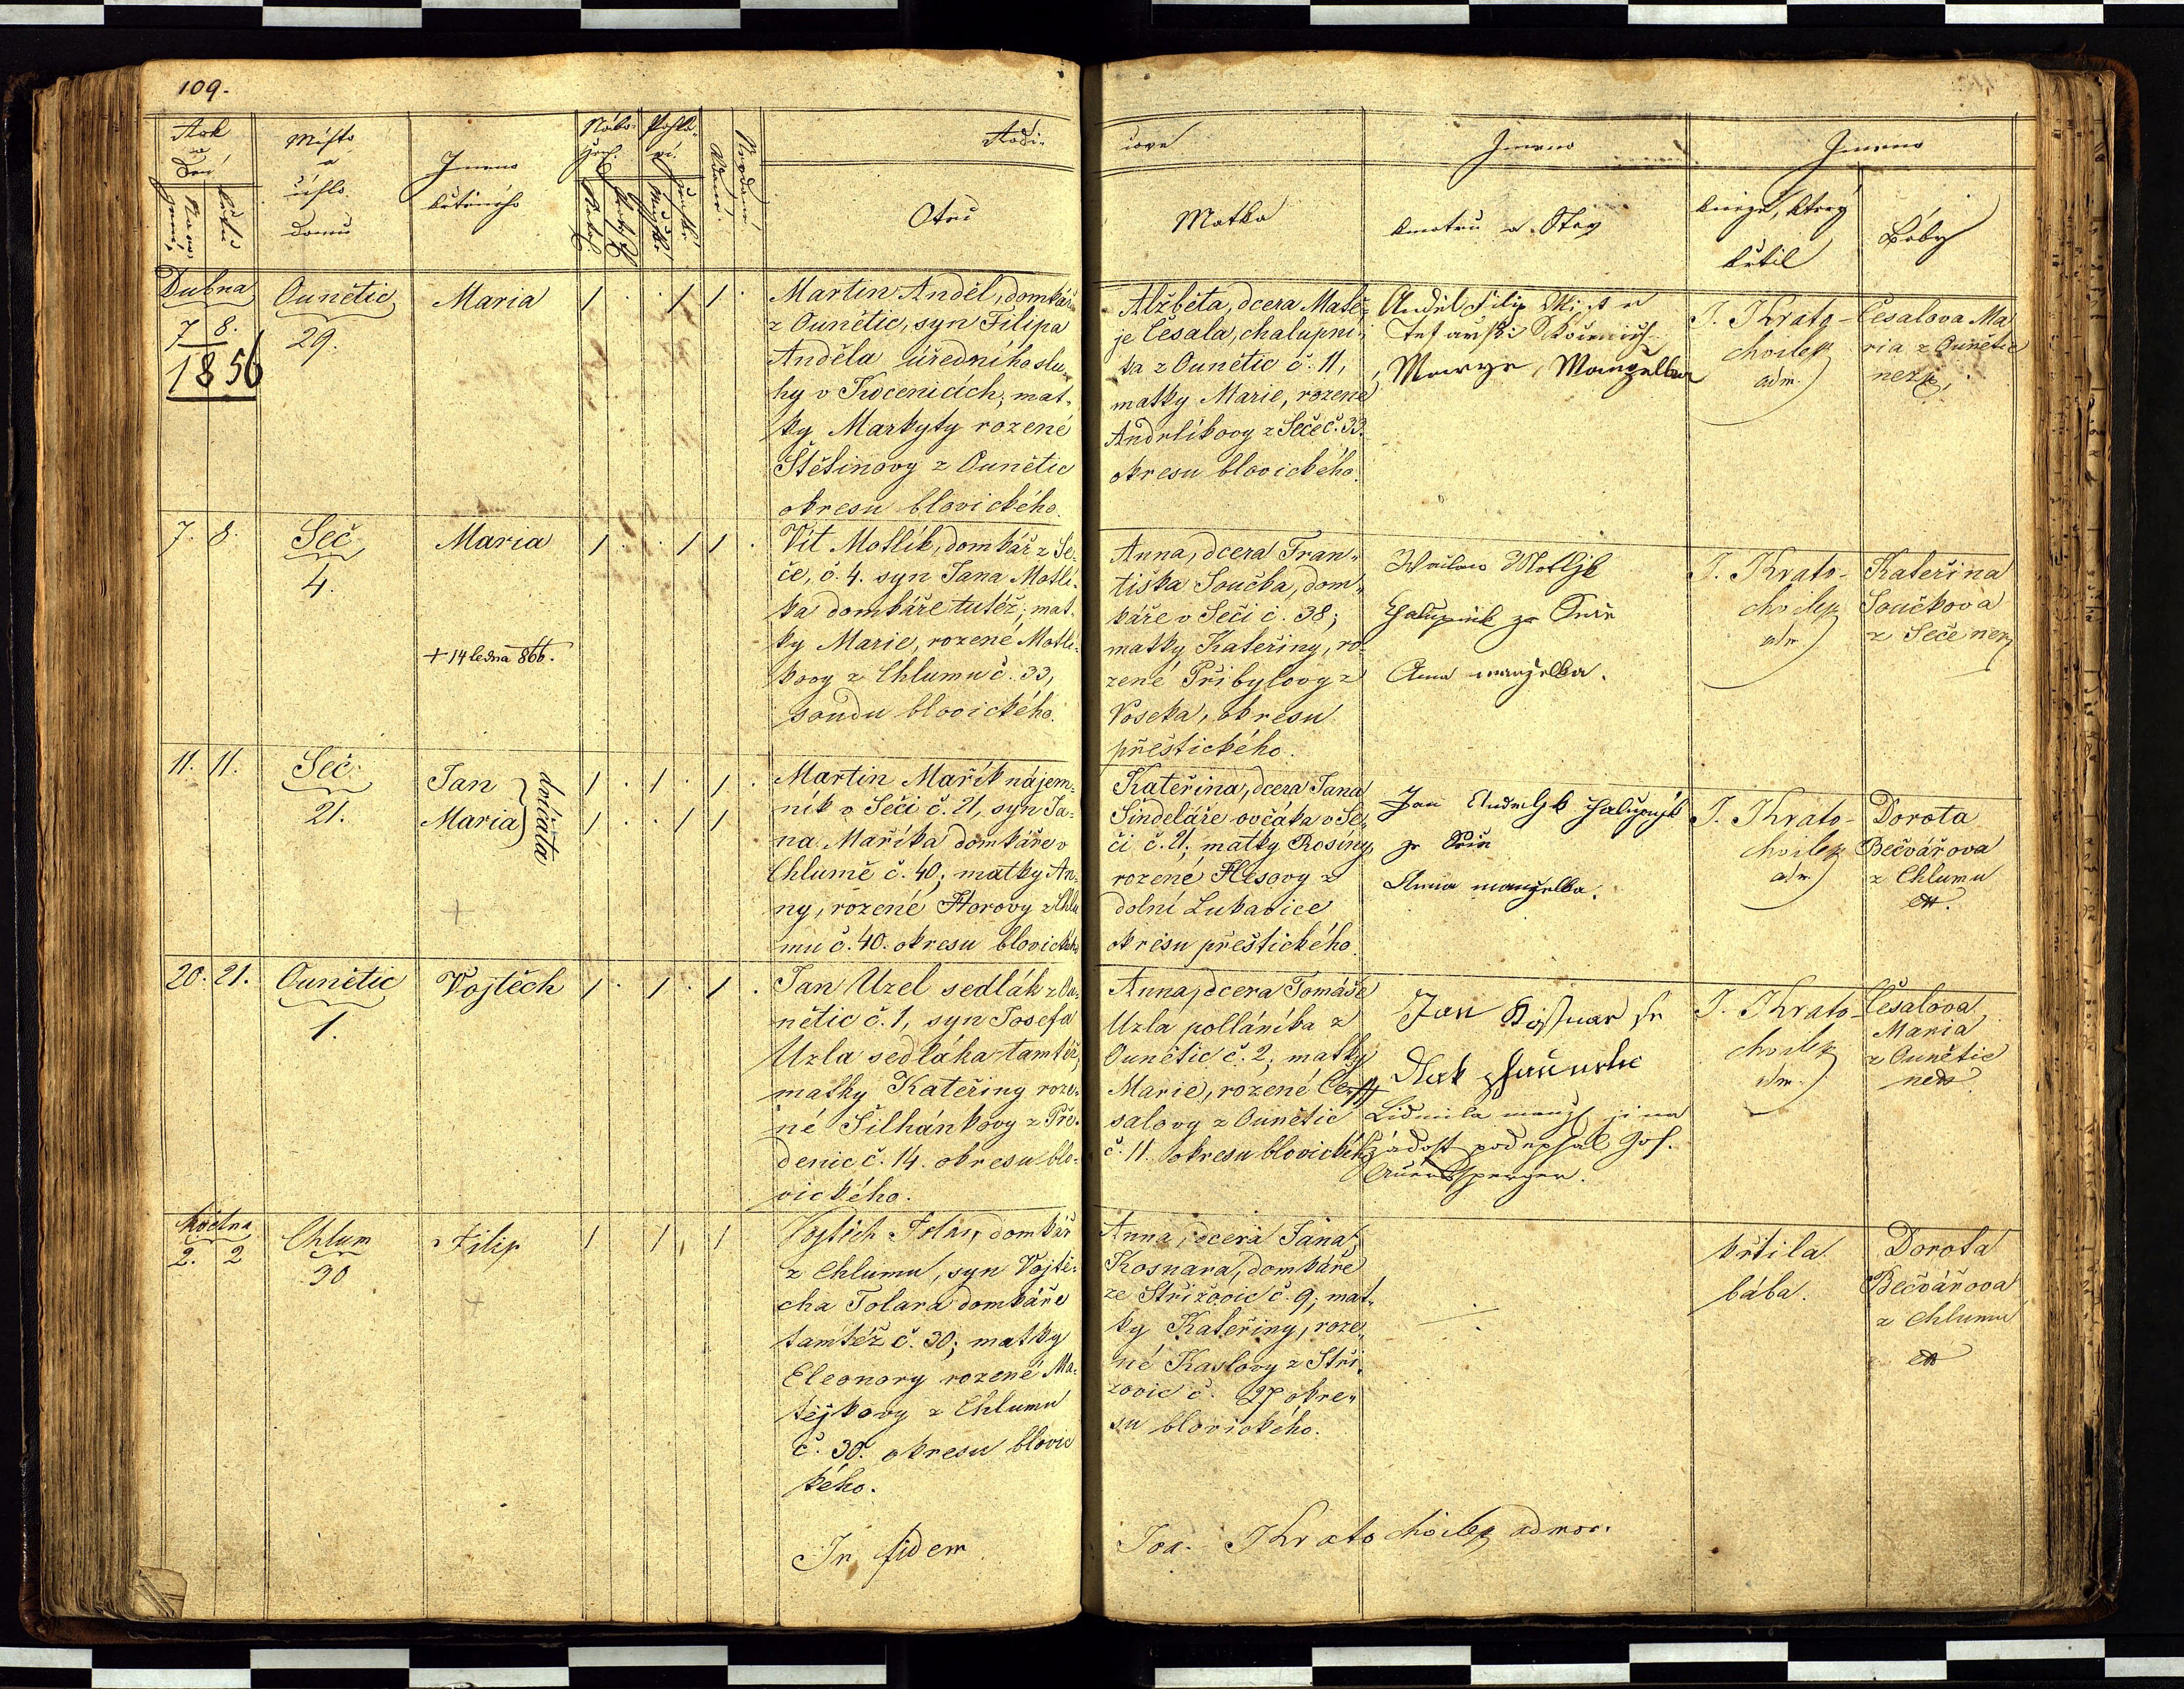 109.
Rok
a
Den
Naro-
zení
křtu
Místo
a
číslo
domu
Jmeno
křtěného
Nábo-
žen.
Pohla-
ví.
Rodi-
Otec
čové
Matka
Jmeno
kmotrů a Stav
Jmeno
kněze, který
křtil
Báby
Dubna
7. 8.
1856
Ounětic
29.
Maria
1 . . 1 1 .
Martin Anděl, domkář
z Ounětic, syn Filipa
Anděla úředního slu-
hy v Kocenicích, mat-
ky Markyty rozené
Štětinovy z Ounětic
okresu blovického.
Alžběta, dcera Matě-
je Česala, chalupní-
ka z Ounětic č. 11,
matky Marie, rozené
Andrlíkovy z Seče č. 33.
okresu blovického.
Anděl Filip
Marye, Manzelka
J. Krato-
chvilek
adm.
Česalova Ma
ria z Ounětic
nezk.
7. 8.
Seč
4.
Maria
+ 14 ledna 866.
1 . . 1 1 .
Vít Motlík, domkář z Se-
če, č. 4. syn Jana Motlí-
ka domkáře tutéž; mat-
ky Marie, rozené Motlí-
kovy z Chlumu č. 33,
soudu blovického.
Anna, dcera Fran-
tiška Součka, dom-
káře v Seči č. 38;
matky Kateřiny, ro-
zené Přibylovy z
Voseka, okresu
přeštického.
Waclaw Motljk
Chalupnik ze Seče
Anna manzelka.
J. Krato-
chvilek
adm
Kateřina
Součkova
z Seče nez
11. 11.
Seč
21.
Jan
Maria
dvíčata
1 . 1 . 1 .
1 . . 1 1
+
Martin Mařík nájem-
ník v Seči č. 21, syn Ja-
na Maříka domkáře v
Chlumě č. 40; matky An-
ny, rozené Horovy z Chlu
mu č. 40. okresu blovického
Kateřina, dcera Jana
Sindeláře ovčáka v Se-
či č. 21; matky Rosiny
rozené Hesovy z
dolní Lukavice
okresu přeštického
Jan Andrljk chalupnjk
ze Seče
Anna manzelka.
J. Krato-
chvilek
adm
Dorota
Bečvářova
z Chlumu
ex.
20. 21.
Ounětic
1.
Vojtěch
1 . 1 . 1 .
Jan Uzel sedlák z Ou-
nětic č. 1, syn Josefa
Uzla sedláka tamtéž,
matky Kateřiny roze-
né Šilhánkovy z Pře-
denic č. 14. okresu blo-
vického.
Anna, dcera Tomáše
Uzla pollánika z
Ounětic č. 2; matky
Marie, rozené Če-
salovy z Ounětic
č. 11 okresu blovického
Jan
Lidmila manž. jina
žádost podepsal Jos.
J. Krato-
chvilek
adm.
Česalova
Maria
z Ounětic
nez
května
2. 2
Chlum
30
Filip
+
1 1 1
Vojtěch Tolar, domkář
z Chlumu, syn Vojtě-
cha Tolara domkáře
tamtéž č. 30; matky
Eleonory rozené Ma-
tějkovy z Chlumu
č. 30. okresu blovic
kého.
Anna, dcera Jana
Kosnara, domkáře
ze Střížovic č. 9; mat-
ky Kateřiny, roze-
né Kaslovy z Stři-
zovic č. 27 okre-
su blovického.
křtila
bába.
Dorota
Bečvářova
z Chlumu
ex
In fidem
Joa. Kratochvilek admor.